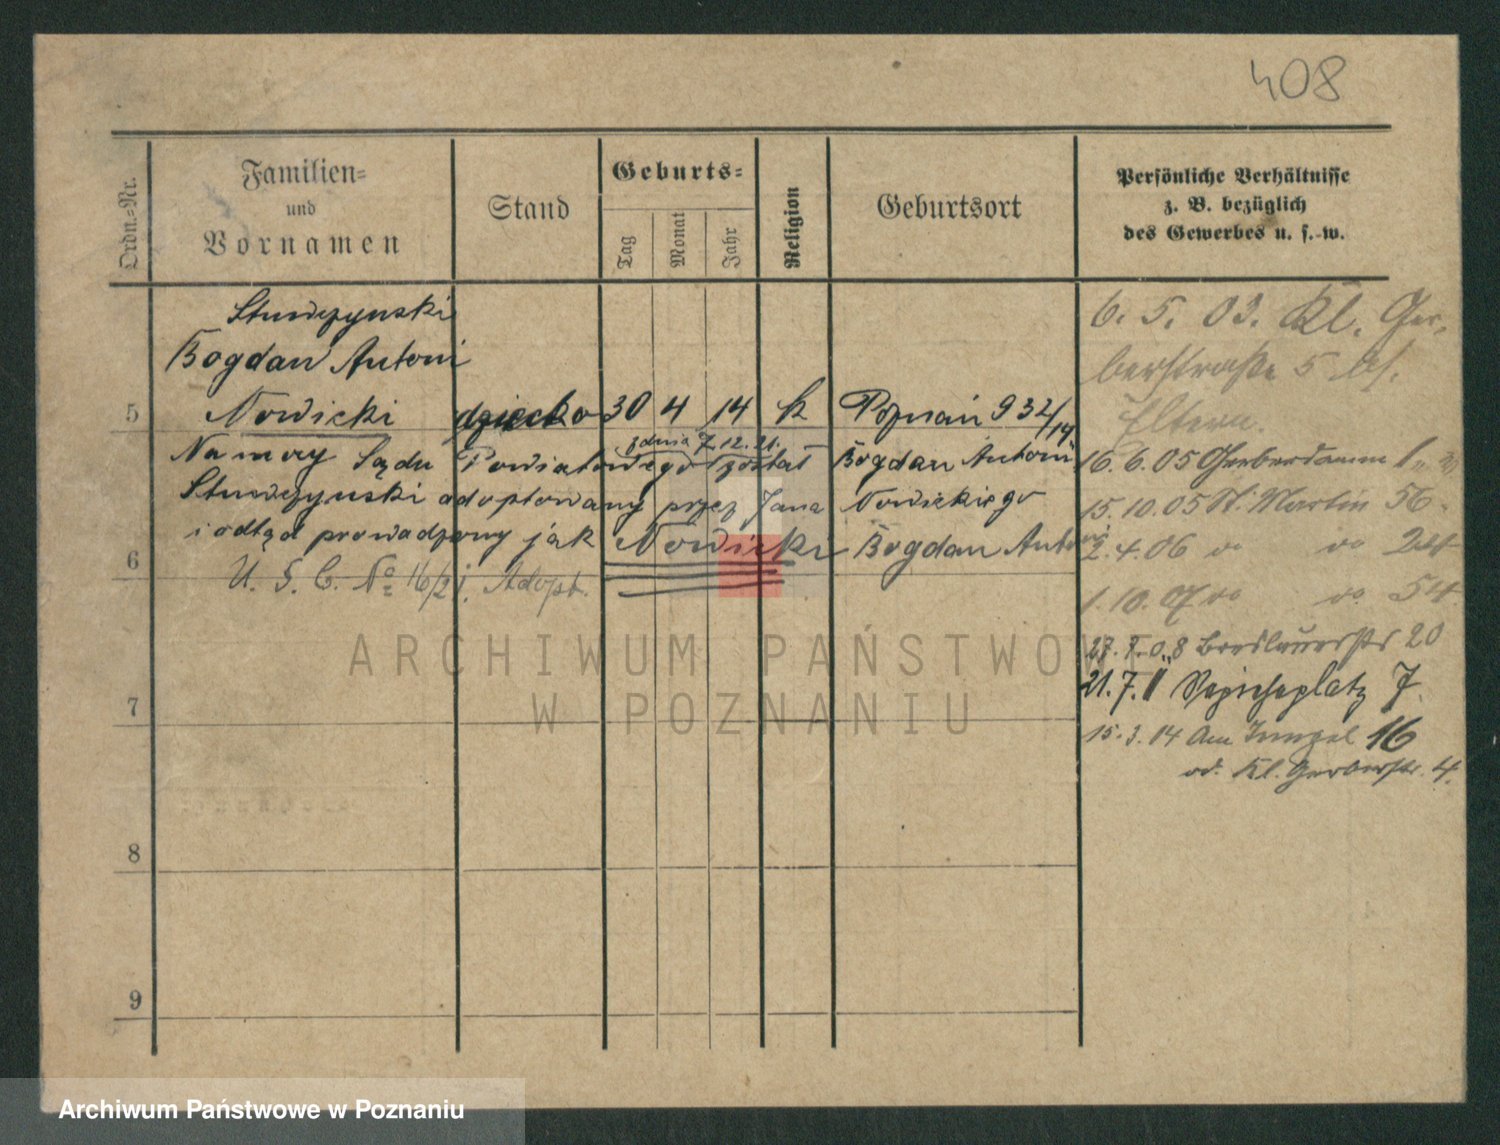 408
Ordn.=Nr.
Familien=
und
Vornamen
Stand
Geburts=
Tag
Monat
Jahr
Religion
Geburtsort
Persönliche Verhältnisse
z. B. bezüglich
des Gewerbes u. s. w.
Bogdan Antoni
5 Nowicki dziecko 30 4 14 k Poznań 932/14
z dnia 7.12.21.
Na mocy Sądu Powiatowego został Bogdan Antoni
adoptowany przez Jana Nowickiego
i odtąd prowadzony jak Nowicki Bogdan Antoni
6
U. S. C. No 16/21. Adopt.
7
8
9
6. 5. 03. Kl. Ger-
berstraße 5 bs.
Eltern.
16. 6. 05 Gerberdamm 1
15. 10. 05 St. Martin 56.
2. 4. 06 do do
1. 10. 07 do do 54
27. 7. 08 Breslauerstr 20
21. 7. 11 Sapiehaplatz 7.
15. 3. 14 16
od. Kl. Gerberstr. 4.
ARCHIWUM PAŃSTWOWE
W POZNANIU
Archiwum Państwowe w Poznaniu